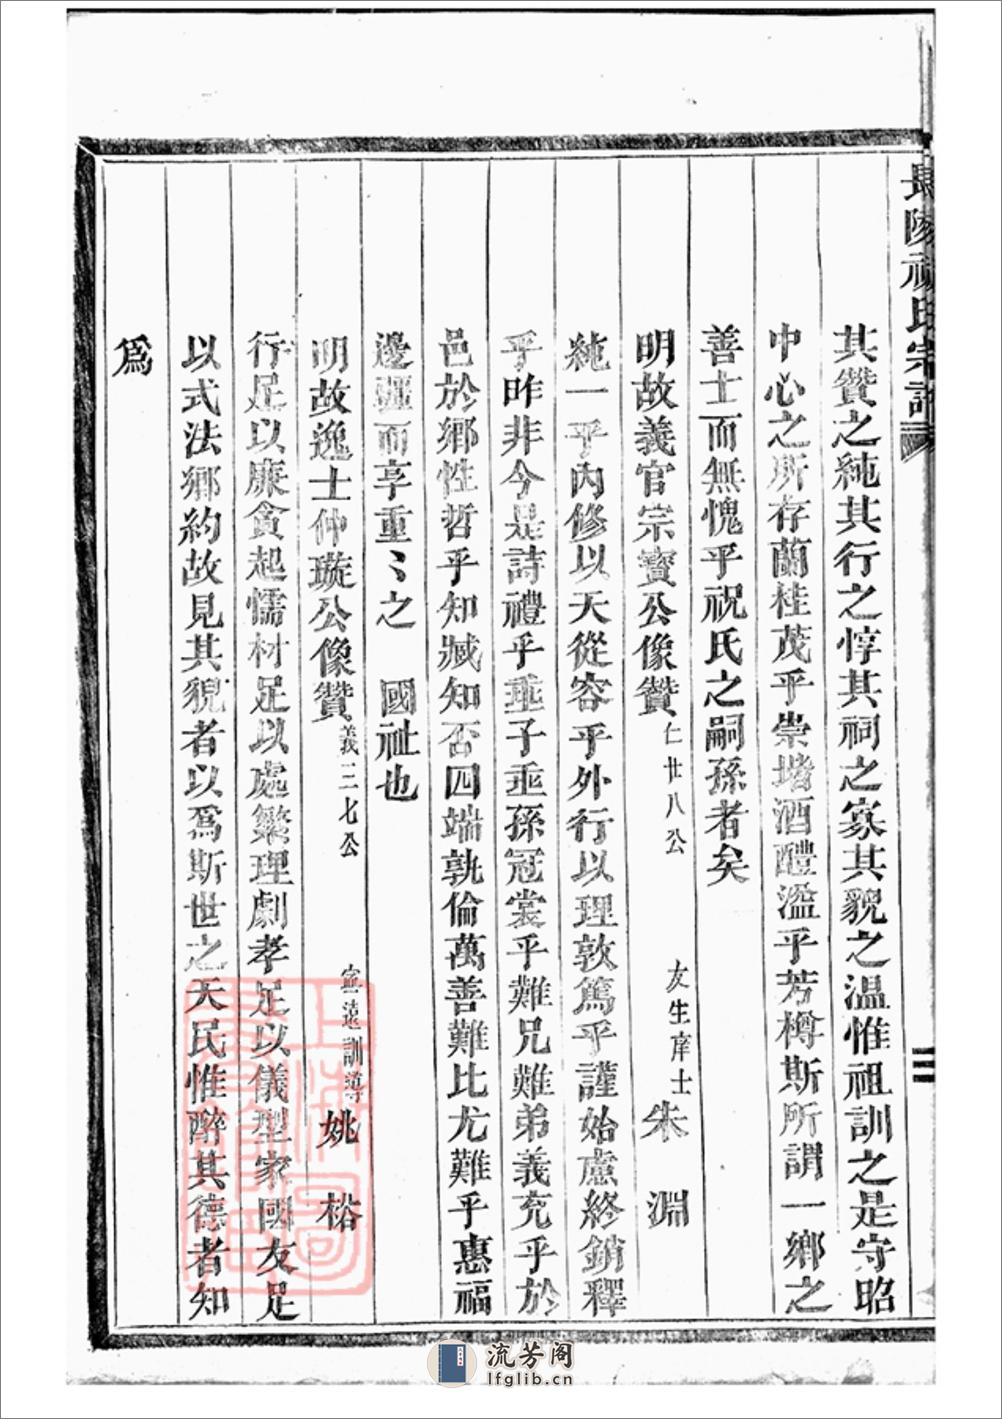 長陵祝氏宗譜
其贊之純其行之惇其祠之寡其貌之溫惟祖訓之是守昭
中心之所存蘭桂茂乎崇堵酒醴濫乎芳樽斯所謂一鄉之
善士而無愧乎祝氏之嗣孫者矣
明故義官宗寶公像贊 仁廿八公 友生庠士 朱 淵
純一乎內修以天從容乎外行以理敦篤乎謹始慮終銷釋
乎昨非今是詩禮乎垂子垂孫冠裳乎難兄難弟義充乎於
邑於鄉性哲乎知臧知否四端孰倫萬善難比尤難乎惠福
邊疆而享重〻之 國祉也
明故逸士仲璇公像贊 義三七公 寧遠訓導 姚 㮤
行足以廉貪起懦材足以處繁理劇孝足以儀型家國友足
以式法鄉約故見其貌者以爲斯世之天民惟醉其德者知
爲
二
流芳阁
lfglib.cn